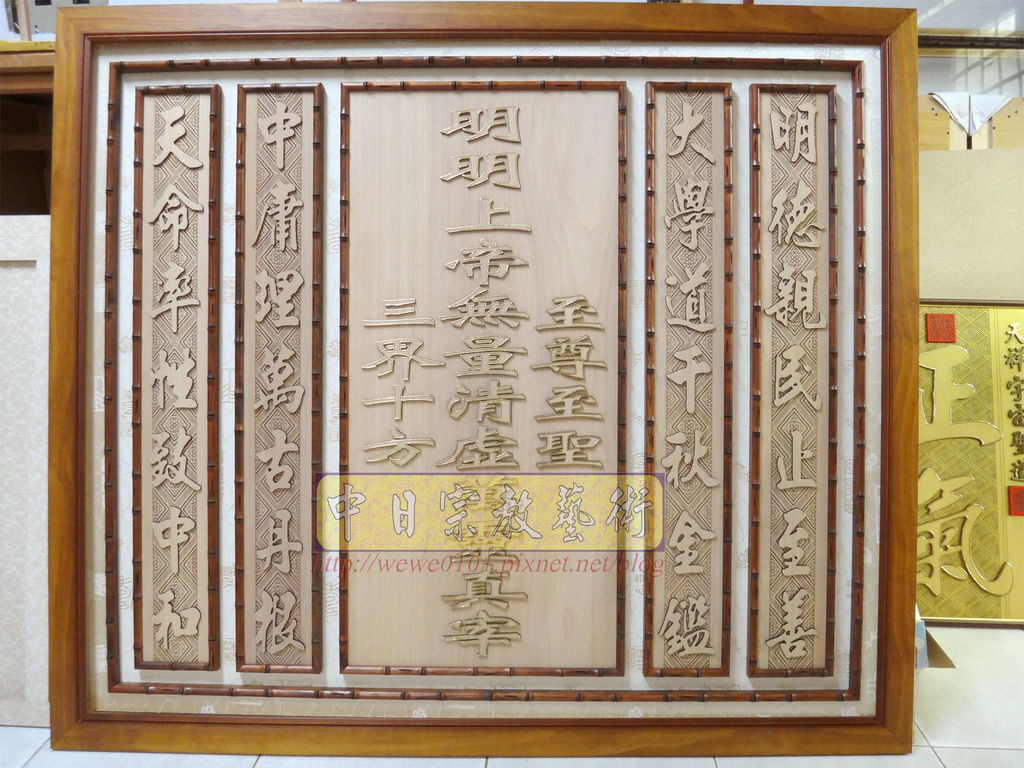 明德親民止至善
大學道千秋金鑑
至尊至聖
明明上帝無量清虛
真宰
三界十方
中庸理萬古丹根
天命率性致中和
中日宗教藝術
http://wewe0101.pixnet.net/blog
正氣